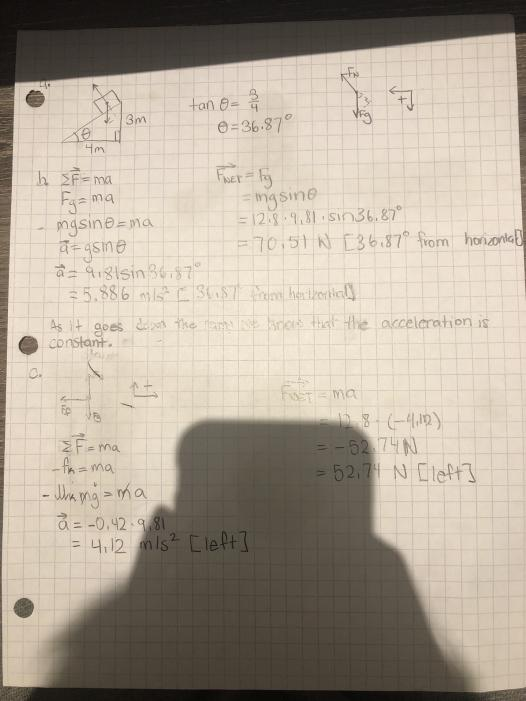 4.
3m
θ
4m
tan θ = 3/4
θ = 36.87°
F_N
Fg
+
b. ΣF⃗ = ma
Fg = ma
mgsinθ = ma
a⃗ = gsinθ
a⃗ = 9.81sin36.87°
= 5.886 m/s² [36.87° from horizontal]
F⃗_NET = Fg
= mgsinθ
= 12.8 · 9.81 · sin36.87°
= 70.51 N [36.87° from horizontal]
As it goes down the ramp we know that the acceleration is
constant.
c.
Fg
+
ΣF⃗ = ma
-fk = ma
-μk mg = ma
a⃗ = -0.42 · 9.81
= 4.12 m/s² [left]
F⃗_NET = ma
= 12.8 · (-4.12)
= -52.74 N
= 52.74 N [left]